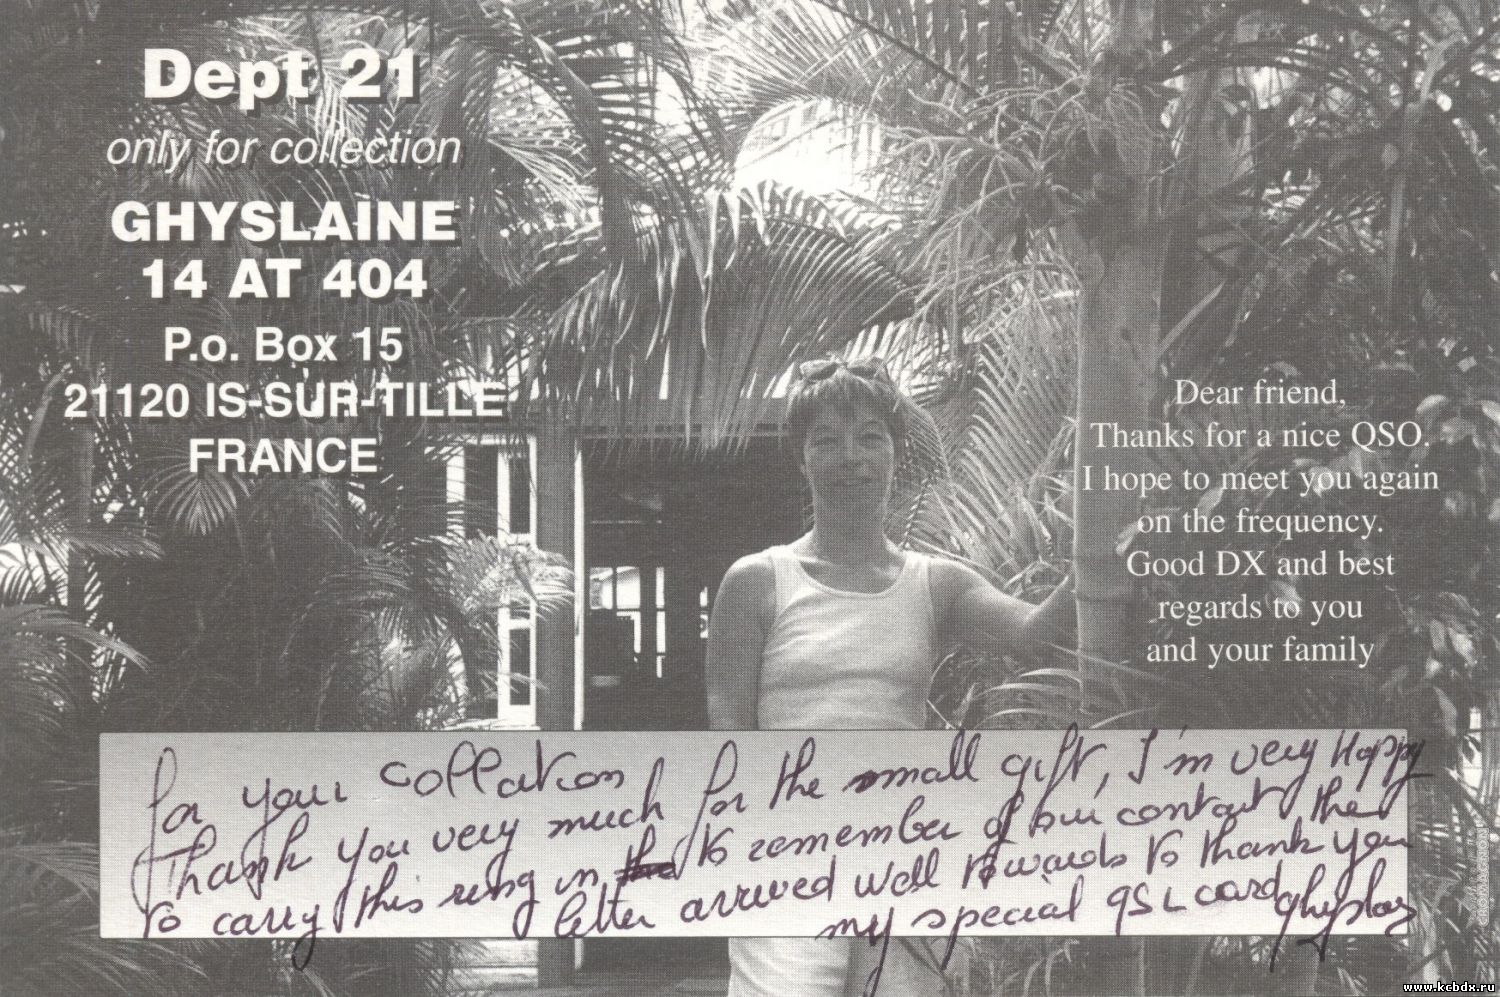 Dept 21
only for collection
GHYSLAINE
14 AT 404
P.o. Box 15
21120 IS-SUR-TILLE
FRANCE
Dear friend,
Thanks for a nice QSO.
I hope to meet you again
on the frequency.
Good DX and best
regards to you
and your family
for your collation
Thank you very much for the small gift, I'm very Happy
to carry this ring in to remember of our contact the
letter arrived well towards to thank you
my special QSL card
CROMAGNON
www.kcbdx.ru